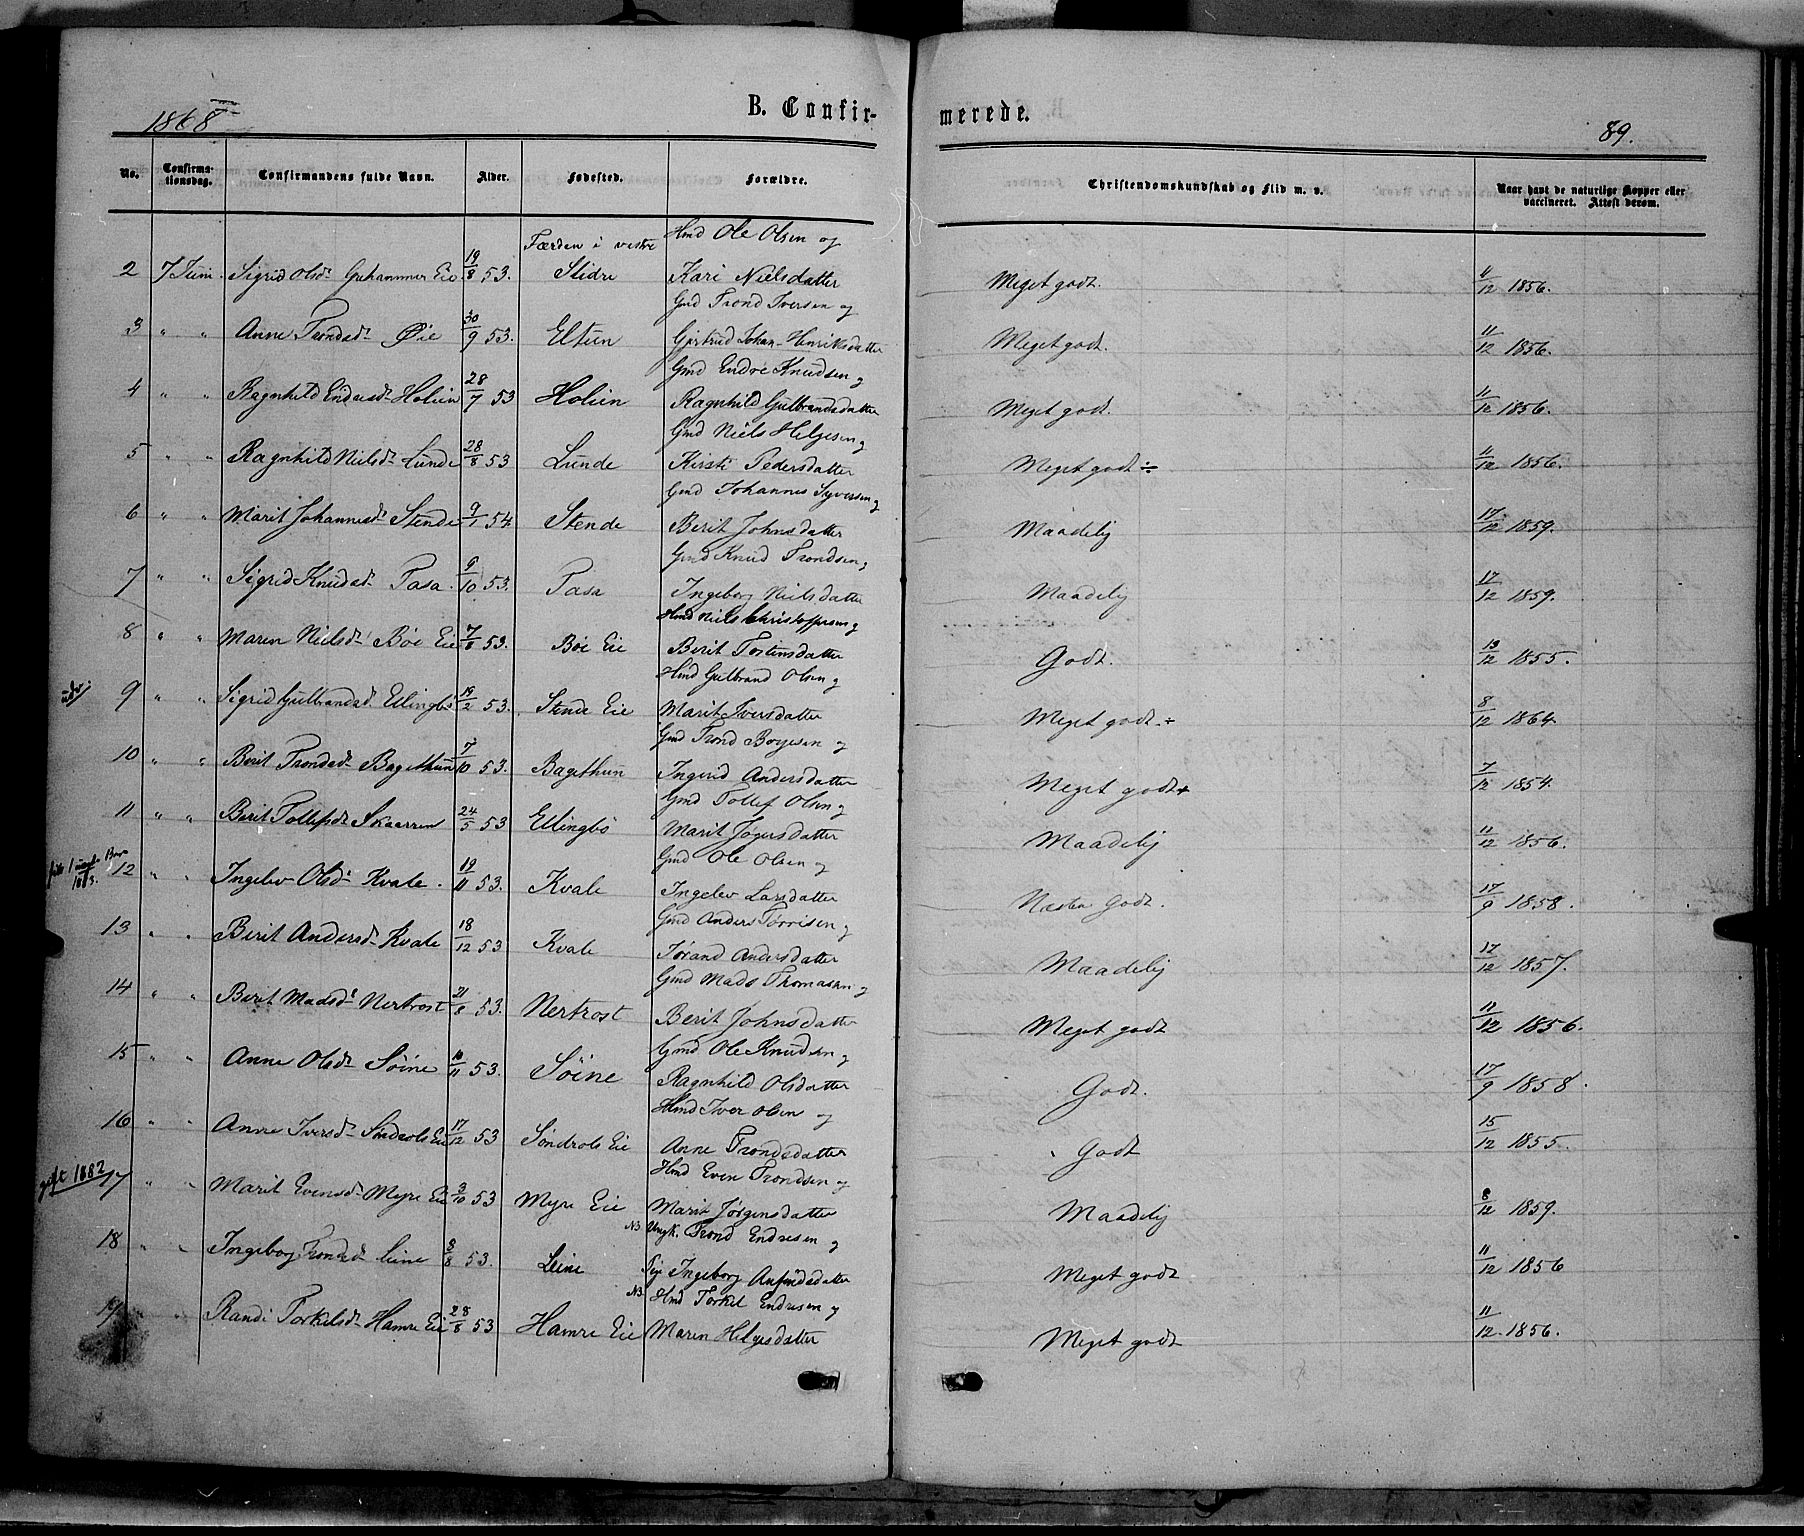 1868
B. Confirmerede.
89.
No.
Confirmationsdag.
Confirmandens fulde Navn.
Alder.
Fødested.
Forældre.
Christendomskundskab og Flid m. v.
Naar havt de naturlige Kopper eller vaccineret. Attest derom.
Færden i vestre Hmd Ole Olsen og
2 7 Juni Sigrid Olsd. Eie 19/8 53. Slidre Kari Nielsdatter Meget godt. 11/12 1856.
Gmd Trond Iversen og
3 " " Anne Trondsd. Øie 30/9 53. Eltun Gjertrud Johan-Henriksdatter Meget godt. 11/12 1856.
Gmd Endre Knudsen og
4 " " Ragnhild Endresd. Holien 28/7 53 Holien Ragnhild Gulbrandsdatter Meget godt. 11/12 1856.
Gmd Niels Helgesen og
5 " " Ragnhild Nielsd. Lunde 28/8 53 Lunde Kirsti Pedersdatter Meget godt ÷ 11/12 1856.
Gmd Johannes Syversen og
6 " " Marit Johannesd. Stende 9/1 54. Stende Berit Johnsdatter Maadelig 17/12 1859.
Gmd Knud Trondsen og
7 " " Sigrid Knudsd. Fasa. 9/10 53. Fasa Ingeborg Nielsdatter Maadelig 17/12 1859.
Hmd Niels Christophersen og
8 " " Maren Nielsd. Bøe Eie 7/8 53. Bøe Eie Berit Tostensdatter Godt. 13/12 1855.
Hmd Gulbrand Olsen og
9 " " Sigrid Gulbrandsd. Ellingbø 19/2 53. Stende Eie Marit Iversdatter Meget godt ÷ 8/12 1864.
Gmd Trond Boyesen og
10 " " Berit Trondsd. Bagethun 7/10 53. Bagethun Ingerid Andersdatter Meget godt + 7/12 1854.
Gmd Tollef Olsen og
11 " " Berit Tollefsd. Skaarren 24/5 53 Ellingbø Marit Jøgersdatter Maadelig 11/12 1856.
Gmd Ole Olsen og
12 " " Ingelev Olsd. Kvale. 19/11 53. Kvale Ingelev Larsdatter Næsten Godt. 17/9 1858.
Gmd Anders Tørrisen og
13 " " Berit Andersd. Kvale 18/12 53 Kvale Jørand Andersdatter Maadelig 17/12 1857.
Gmd Mads Thomasen og
14 " " Berit Madsd. Nertrost 21/8 53. Nertrost Berit Johnsdatter Meget godt 11/12 1856.
Gmd Ole Knudsen og
15 " " Anne Olsd. Søine 10/11 53. Søine Ragnhild Olsdatter Godt. 17/9 1858.
Hmd Iver Olsen og
16 " " Anne Iversd. Søndrols Eie 17/12 53 Søndrols Eie Anne Trondsdatter Godt 15/12 1855.
Hmd Even Trondsen og
gift 1882 17 " " Marit Evensd. Myre Eie 3/10 53 Myre Eie Marit Jørgensdatter Maadelig 8/12 1859.
NB Ungk. Trond Endresen og
18 " " Ingeborg Trondsd. Leine 8/8 53. Leine Pige Ingeborg Anfindsdatter Meget godt 11/12 1856
NB Hmd Torkel Endresen og
19 " " Randi Torkelsd. Hamre Eie 28/8 53 Hamre Eie Maren Helgesdatter Meget godt 11/12 1856.